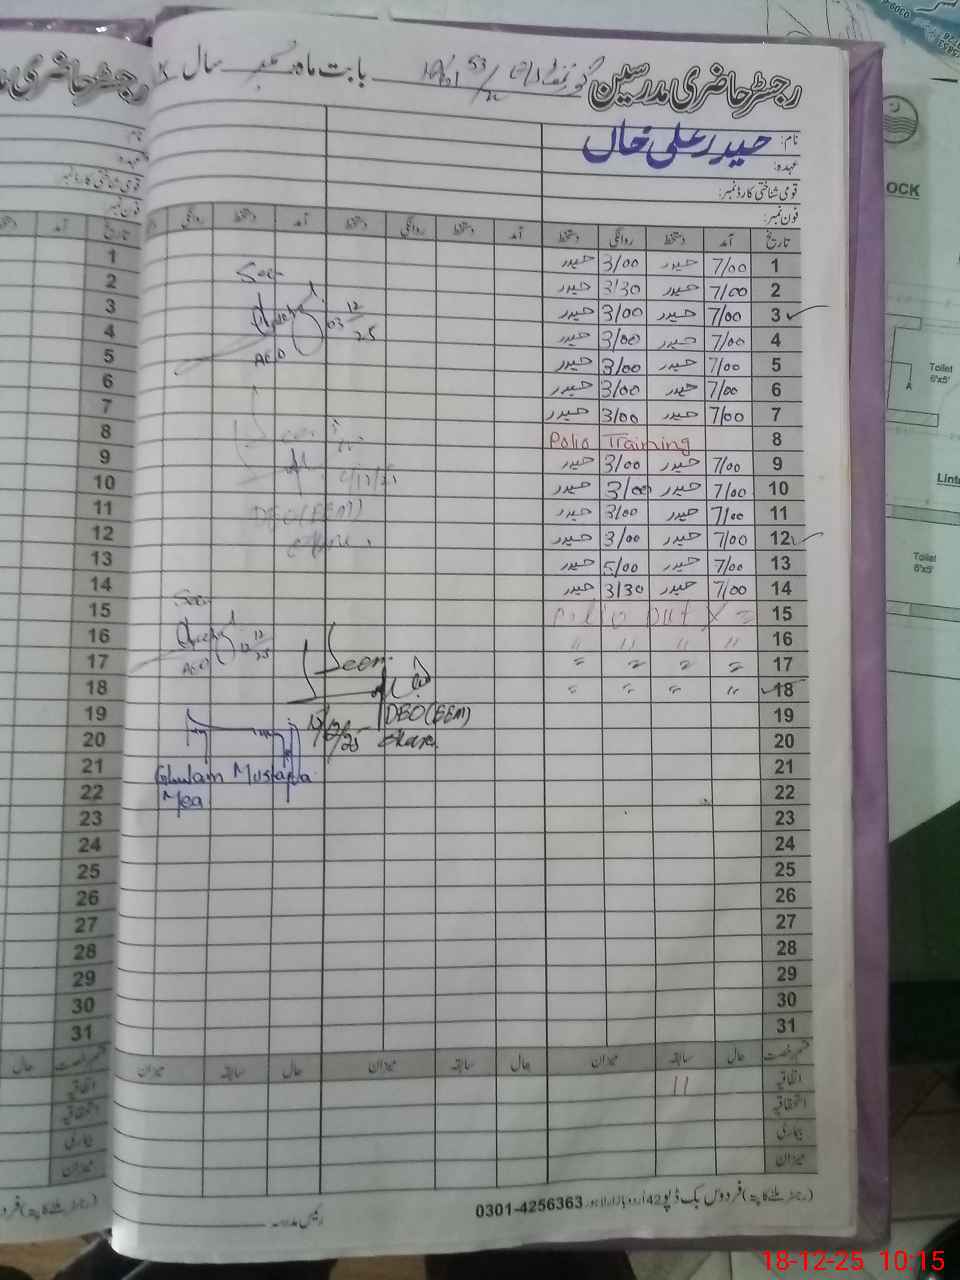 رجسٹر حاضری مدرسین
بابت ماہ دسمبر سال
نام: حیدر علی خان
عہدہ:
قومی شناختی کارڈ نمبر:
فون نمبر:
تاریخ آمد دستخط روانگی دستخط آمد دستخط روانگی دستخط آمد دستخط روانگی
1 7/00 حیدر 3/00 حیدر
2 7/00 حیدر 3/30 حیدر
3 7/00 حیدر 3/00 حیدر
4 7/00 حیدر 3/00 حیدر
5 7/00 حیدر 3/00 حیدر
6 7/00 حیدر 3/00 حیدر
7 7/00 حیدر 3/00 حیدر
8 Polio Training
9 7/00 حیدر 3/00 حیدر
10 7/00 حیدر 3/00 حیدر
11 7/00 حیدر 3/00 حیدر
12 7/00 حیدر 3/00 حیدر
13 7/00 حیدر 5/00 حیدر
14 7/00 حیدر 3/30 حیدر
15 Polio
16 " " " "
17 " " " "
18 " " " "
19
20
21
22
23
24
25
26
27
28
29
30
31
Seen
03 12/25
AEO
DEO(EEM)
Seen
12 12/25
AEO
Seen
DEO(EEM)
Okara
Ghulam Mustafa
Mea
قسم رخصت حال سابقہ میزان حال سابقہ میزان حال سابقہ میزان
اتفاقیہ 11
استحقاقیہ
بیماری
میزان
(رجسٹر ملنے کا پتہ) فردوس بک ڈپو 42 اردو بازار لاہور 0301-4256363
رئیس مدرسہ
1
2
3
4
5
6
7
8
9
10
11
12
13
14
15
16
17
18
19
20
21
22
23
24
25
26
27
28
29
30
31
OCK
Toilet
6'x5'
A
Toilet
6'x5'
18-12-25 10:15